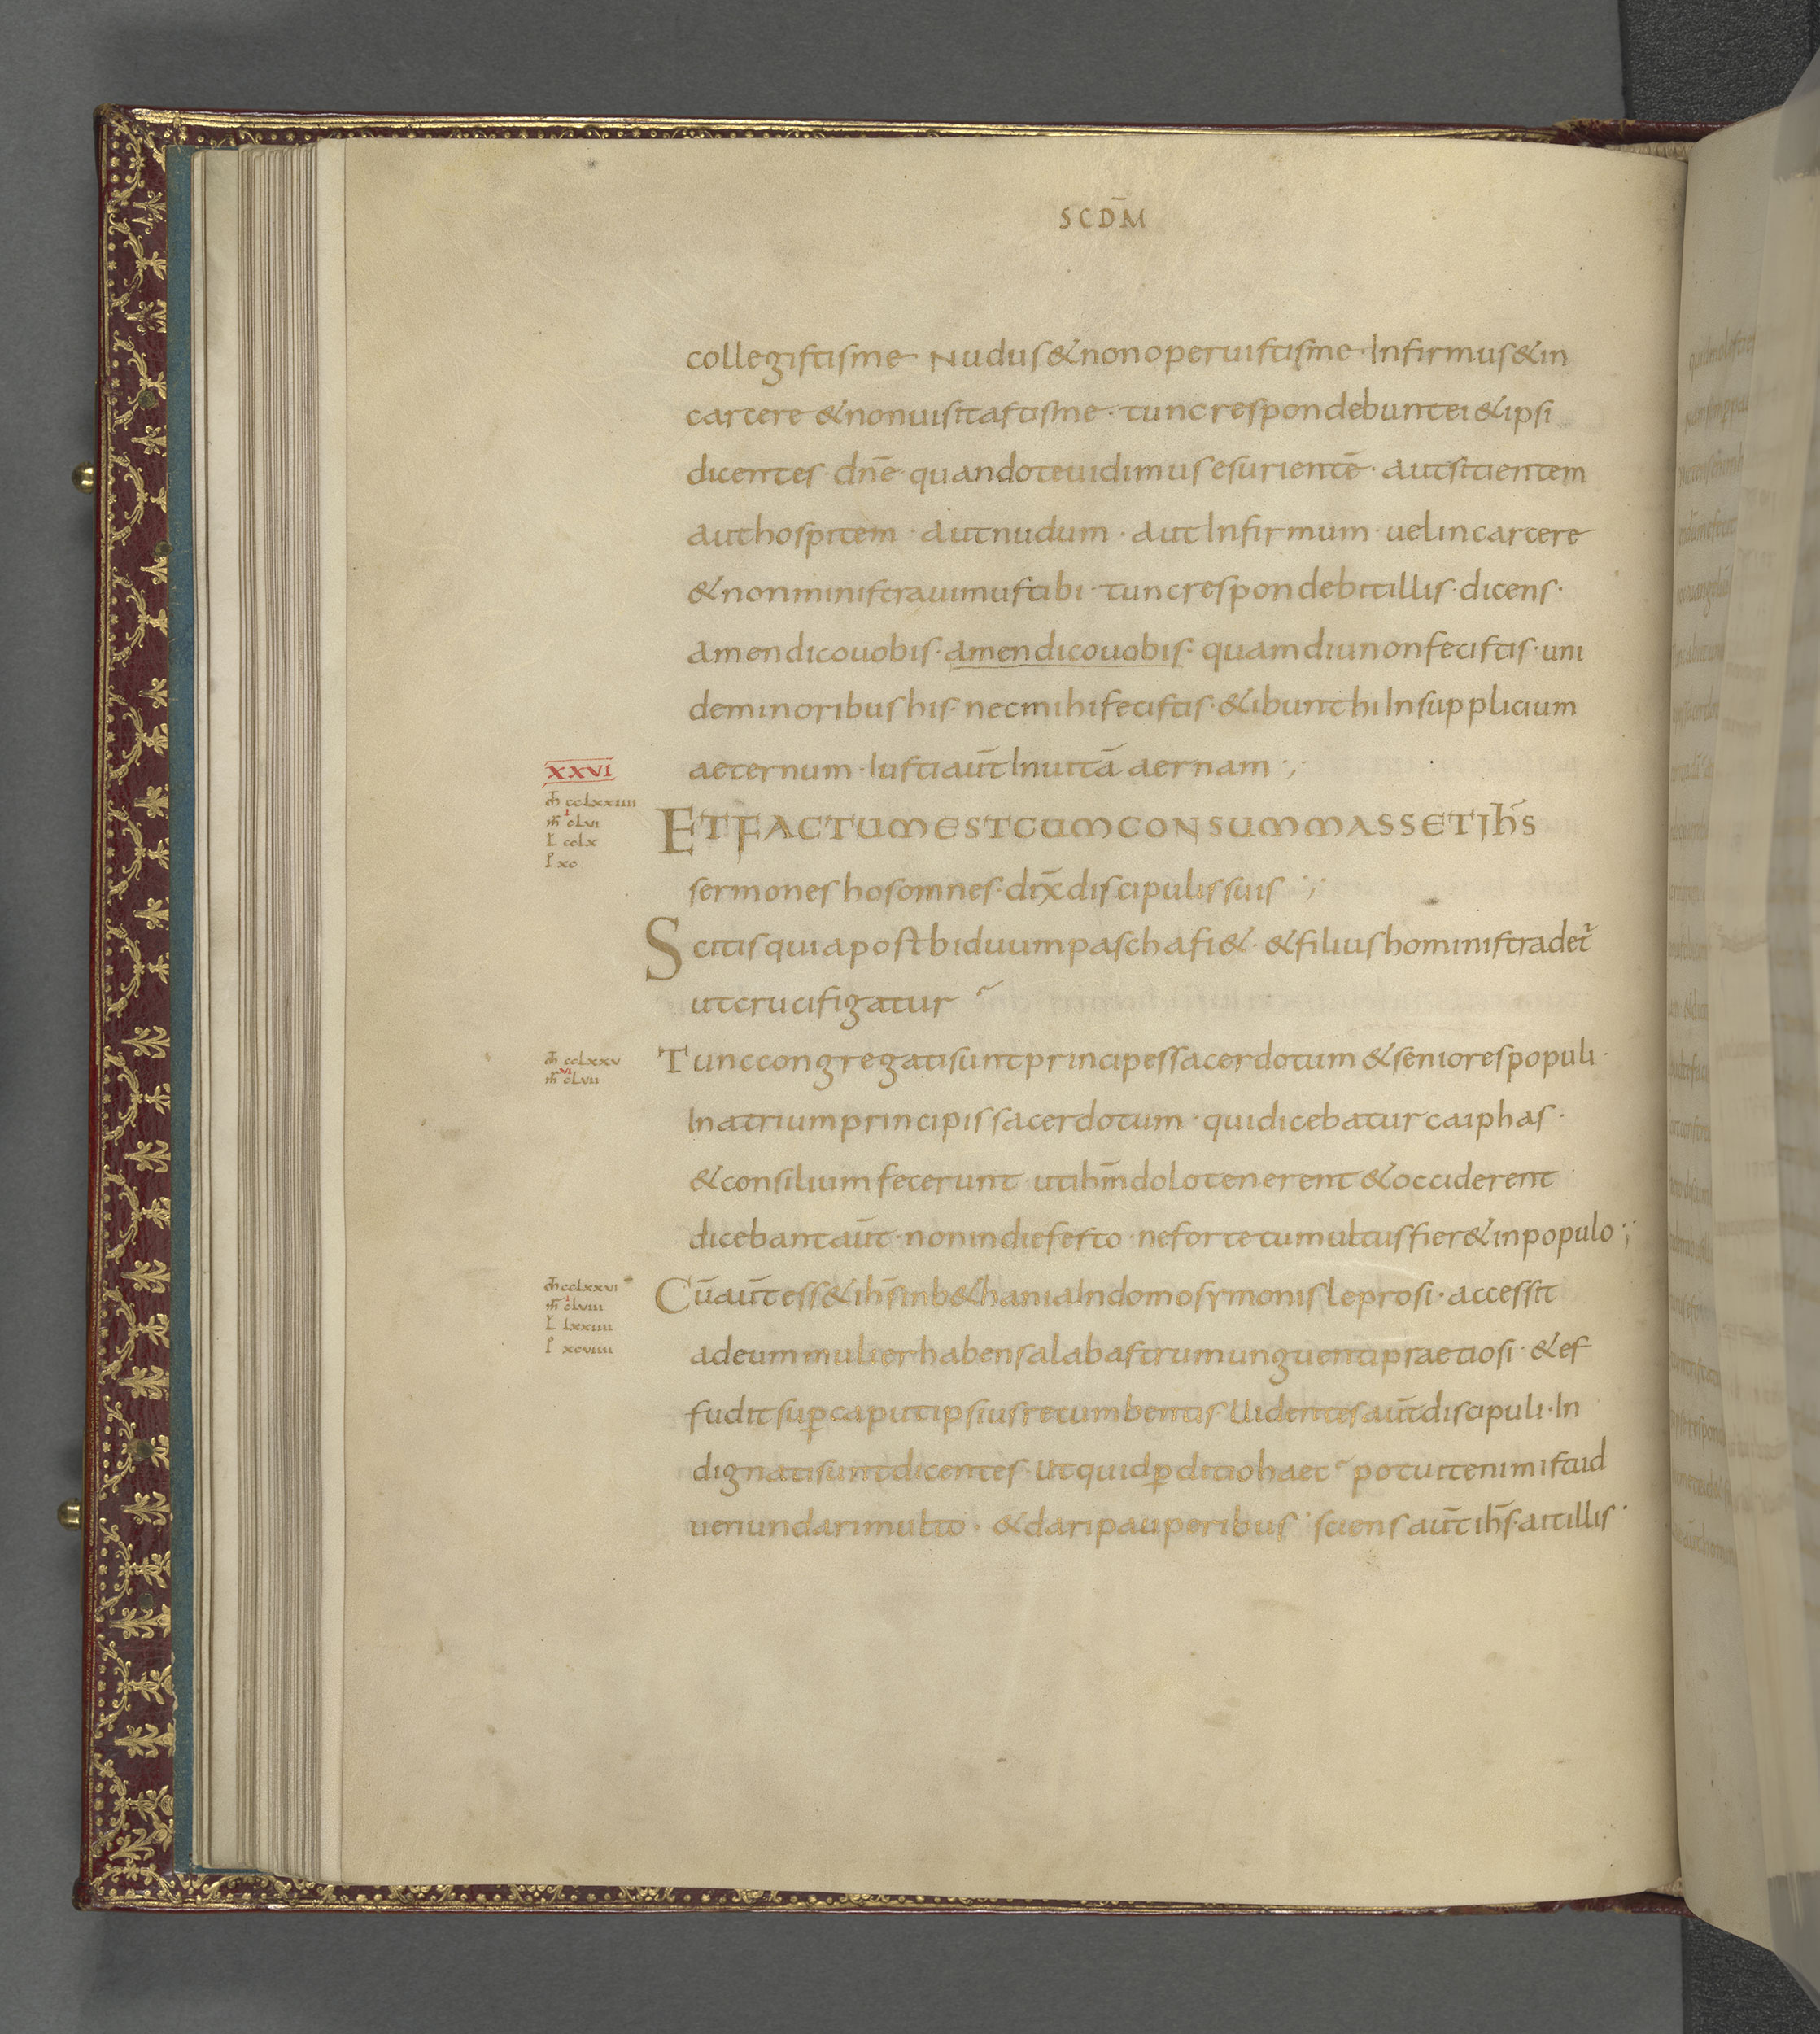 SCDM̄
collegistisme Nudus&nonoperuistisme · Infirmus&in
carcere &nonuisitastisme · tuncrespondebuntei&ipsi
dicentes · dn̄e quandoteuidimusesurientē · autsitientem
authospitem · autnudum · autInfirmum · uelincarcere
&nonministrauimustibi · tuncrespondebitillis · dicens ·
amendicouobis · amendicouobis · quamdiunonfecistis · uni
deminoribushis · necmihifecistis · &ibunthiInsupplicium
XXVI
aeternum · Iustiaut̄Inuitā aernam ·,·
m̄ ccLxxiiii
i
m̄ cLvi
L ccLx
I xc
ETFACTUMESTCUMCONSUMMASSETIhS̄
sermoneshosomnes · dix̄discipulissuis ·,·
Scitisquiapostbiduumpaschafi& · &filiushoministradet᷑
utcrucifigatur
m̄ ccLxxv
vi
m̄ cLvii
Tunccongregatisuntprincipessacerdotum&seniorespopuli ·
Inatriumprincipissacerdotum · quidicebaturcaiphas ·
&consiliumfecerunt · utihm̄dolotenerent&occiderent
dicebantaut̄ · nonindiefesto · nefortetumultusfier&inpopulo ·,·
m̄ ccLxxvi
i
m̄ cLviii
L Lxxiiii
I xcviiii
Cūaut̄ess&ihs̄inb&haniaIndomosymonisleprosi · accessit
adeummulierhabensalabastrumunguentipraetiosi · &ef
fuditsup̱caputipsiusrecumbentis · Uidentesaut̄discipuli · In
dignatisuntdicentes · Utquidp̱ditiohaec potuitenimistud
uenundarimulto · &daripauperibus · sciensaut̄ihs̄ · aitillis ·